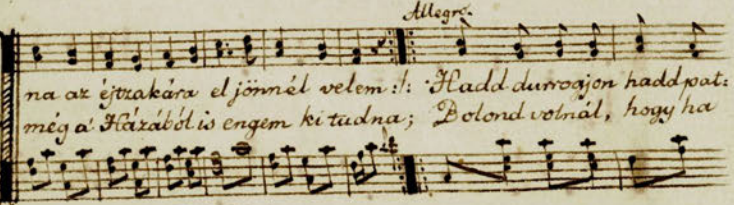 Allegro.
na az éjtzakára el jönnél velem :|: Hadd durrogjon hadd pat:
még a' Házából is engem ki tudna; Bolond volnál, hogy ha